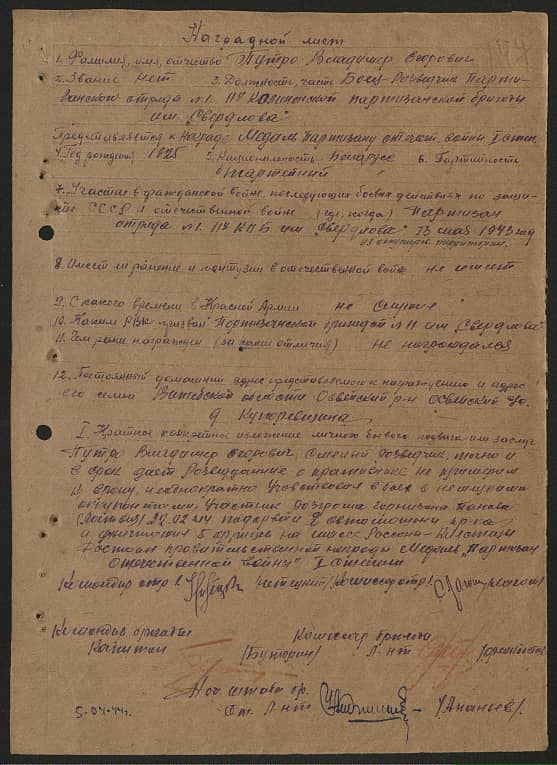 Наградной лист
1. Фамилия, имя, отчество Путро Владимир Егорович
2. Звание нет 3. Должность, часть Боец-Разведчик Парти-
занского отряда №1 11й Калининской партизанской бригады
им. "Свердлова"
Представляется к Награде Медаль Партизану отечест. войны I степ.
4. Год рождения 1925 5. Национальность Беларусс 6. Партийность
7. Участие в гражданской войне, последующих боевых действиях по защи-
те СССР и отечественной войне (где, когда) Партизан
отряда №1. 11й КПБ им "Свердлова" мая 1943 год
8. Имеет ли ранение и контузии в отечественной войне не имеет
9. С какого времени в Красной Армии не служил
10. Каким РВК призван Партизанской бригадой №11 им "Свердлова"
11. Чем ранее награжден (за какие отличия) не награждался
12. Постоянный домашний адрес представляемого к награждению и адрес
его семьи Витебской области Освейский р-н Освейский
д
I. Краткое конкретное изложение личного боевого подвига или заслуг
Путро Владимир Егорович, Смелый разведчик, точно и
в срок дает Разведданые о
врагу, неоднократно Участвовал в боях с немецкими
оккупантами, Участник Разгрома гарнизона
(Латвия) подорвал 2 автомашины пр-ка
и уничтожил 5 на шоссе Россоны-Клястицы
Достоин правительственной награды Медаль "Партизан
Отечественной войны" I степени
Командир отр 1. Комиссар отр 1
Командир бригады Комиссар бригады
Капитан /Буторин/ Л-нт
Нач штаба бр.
Ст. Л-нт /Ананьев/.
5-04-44г.